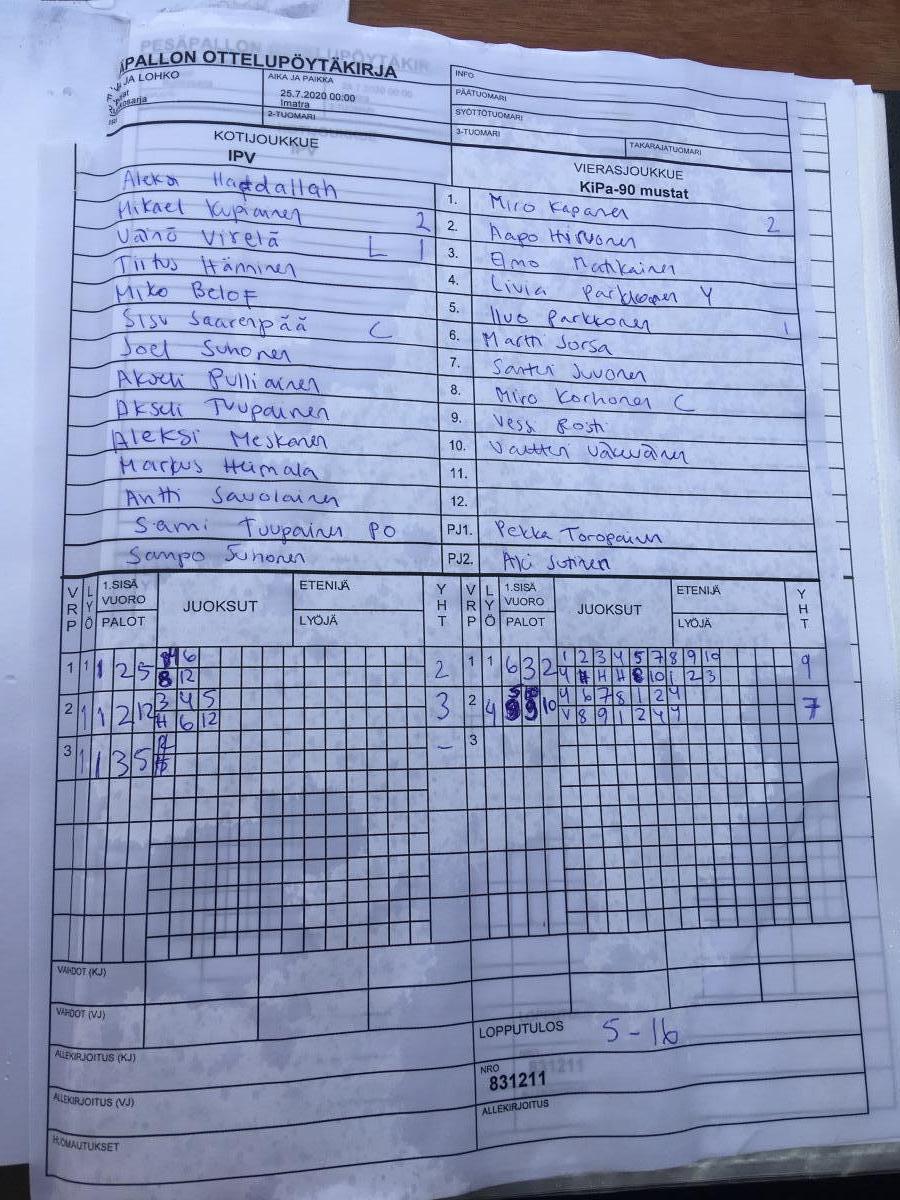 PALLON OTTELUPÖYTÄKIRJA
JA LOHKO
AIKA JA PAIKKA
25.7.2020 00:00
Imatra
2-TUOMARI
INFO
PÄÄTUOMARI
SYÖTTÖTUOMARI
3-TUOMARI
TAKARAJATUOMARI
KOTIJOUKKUE
IPV
VIERASJOUKKUE
KiPa-90 mustat
Aleksi Haddallah
1. Miro Kapanen
Mikael Kupiainen 2
2. Aapo Hirvonen 2
Väinö Virelä L 1
3. Elmo Matikainen
Tiitus Hänninen
4. Livia Parkkonen Y
Miko Belof
5. Iivo Parkkonen 1
Sisu Saarenpää C
6. Martti Sorsa
Joel Suhonen
7. Santeri Juvonen
Akseli Pulliainen
8. Miro Korhonen C
Akseli Tuupainen
9. Vess Rosti
Aleksi Meskanen
10.
Markus Heimala
11.
Antti Savolainen
12.
Sami Tuupainen PO
PJ1. Pekka Toropainen
Sampo Suhonen
PJ2. Aki Sutinen
VRP LYÖ 1.SISÄ VUORO PALOT JUOKSUT ETENIJÄ LYÖJÄ YHT
VRP LYÖ 1.SISÄ VUORO PALOT JUOKSUT ETENIJÄ LYÖJÄ YHT
1 1 1 2 5 4 6 2
8 12
1 1 6 3 2 1 2 3 4 5 7 8 9 10 9
4 H H H 8 10 1 2 3
2 1 1 2 12 3 4 5 3
H 6 12
2 4 9 10 4 6 7 8 1 2 4 7
V 8 9 1 2 4 4
3 1 1 3 5 –
3
VAIHDOT (KJ)
VAIHDOT (VJ)
LOPPUTULOS 5-16
ALLEKIRJOITUS (KJ)
NRO
831211
ALLEKIRJOITUS (VJ)
ALLEKIRJOITUS
HUOMAUTUKSET